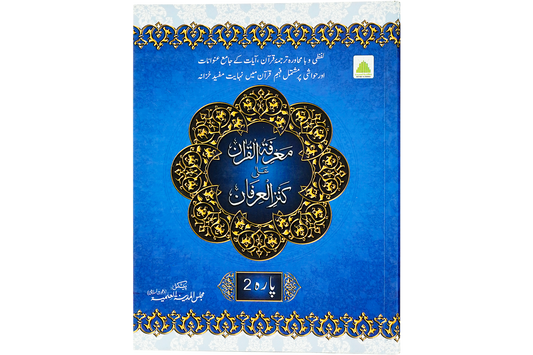 لفظی و بامحاورہ ترجمۂ قرآن، آیات کے جامع عنوانات
اور حواشی پر مشتمل فہمِ قرآن میں نہایت مفید خزانہ
معرفۃ القرآن
علیٰ
کنز العرفان
پارہ 2
پیشکش
مجلس المدینۃ العلمیۃ